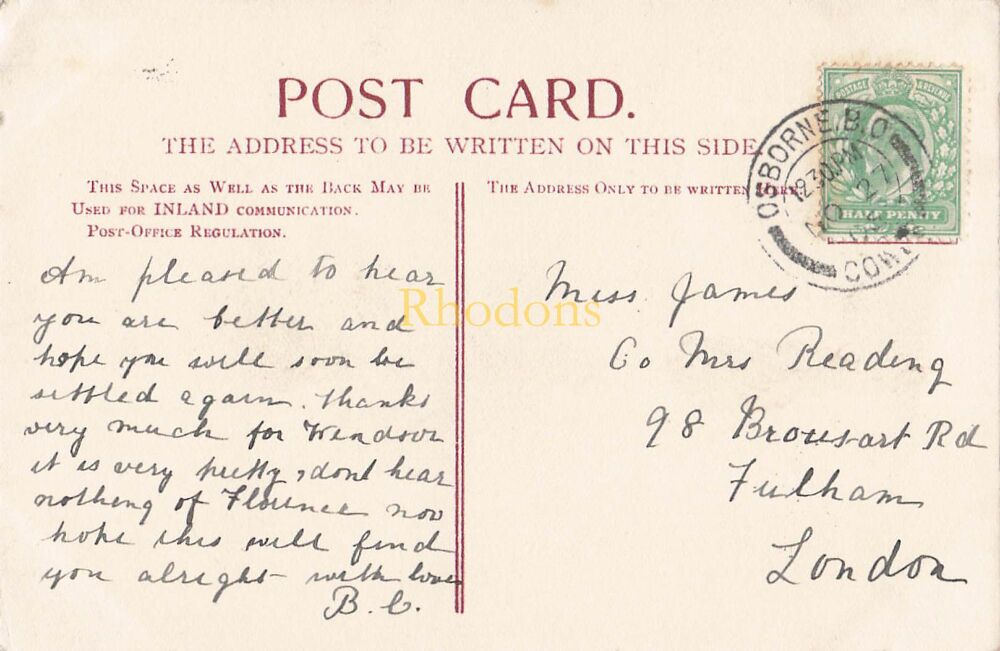 POST CARD.
THE ADDRESS TO BE WRITTEN ON THIS SIDE
THIS SPACE AS WELL AS THE BACK MAY BE
USED FOR INLAND COMMUNICATION.
POST-OFFICE REGULATION.
THE ADDRESS ONLY TO BE WRITTEN HERE
POSTAGE & REVENUE
HALF PENNY
OSBORNE.B.O
12 30 PM
NO 27
COW
Am pleased to hear
you are better and
hope you will soon be
settled again. thanks
very much for Windsor
it is very pretty, dont hear
nothing of Florence now
hope this will find
you alright with love
B.C.
Miss James
Co Mrs Reading
98 Brousart Rd
Fulham
London
Rhodons